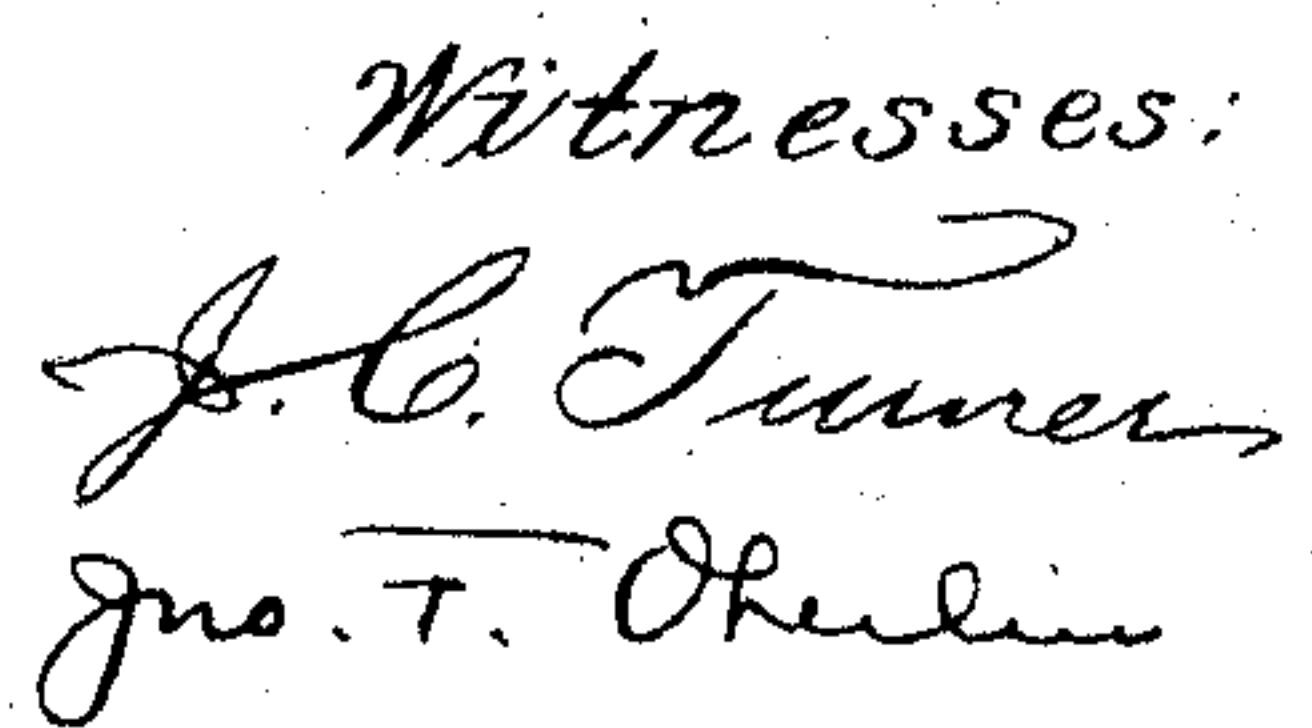 Witnesses:
J. C. Turner
Jno. T. Oberlin